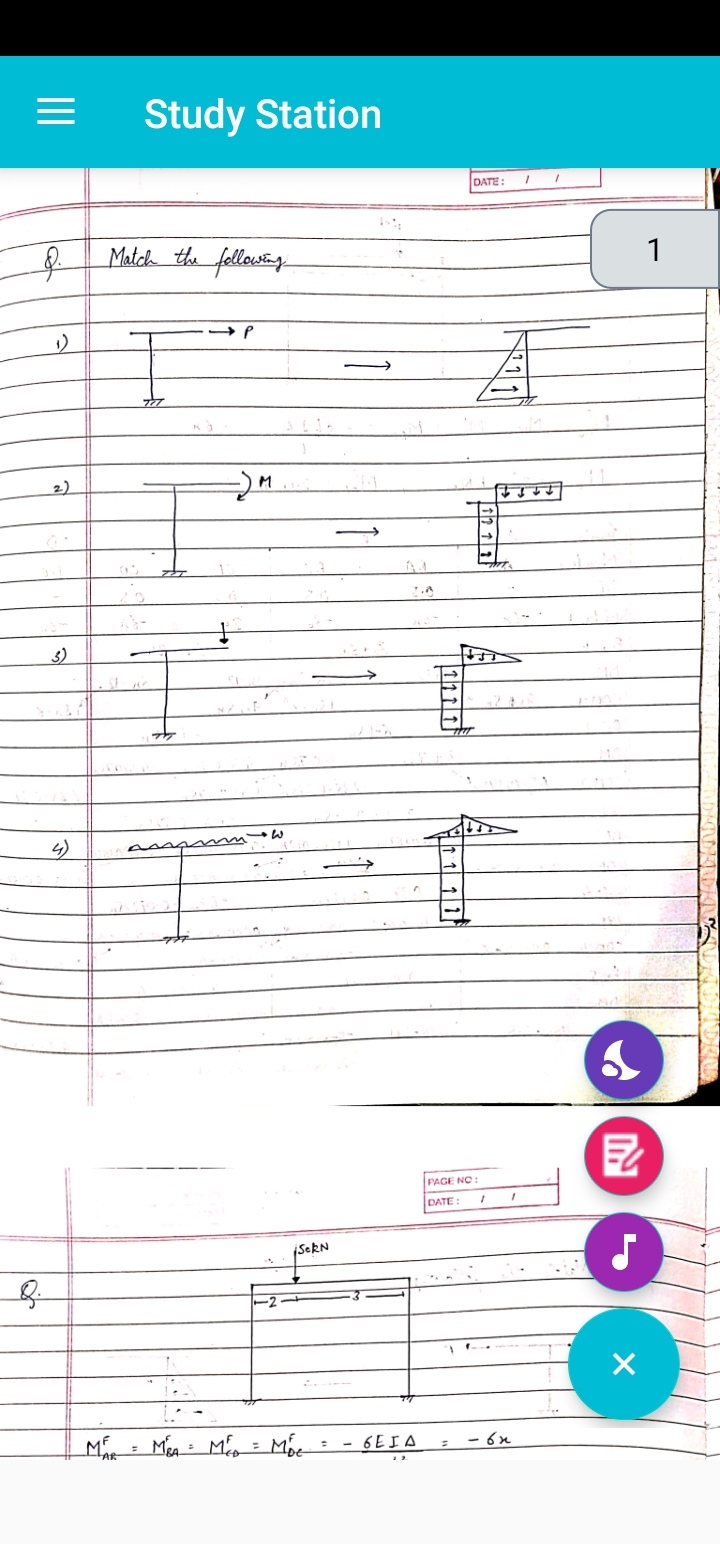 Study Station
DATE: / /
1
Q. Match the following
1) P
2) M
3)
4) w
)²
PAGE NO:
DATE: / /
50kN
Q.
2 3
M^F_AB = M^F_BA = M^F_CD = M^F_DC = - 6EIΔ = - 6x